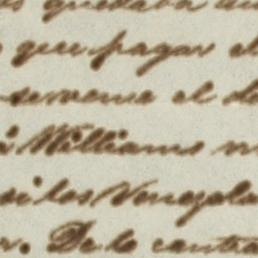 quedaba
que pagar el
serveme el
á Williams
si los Venezola
De lo contra